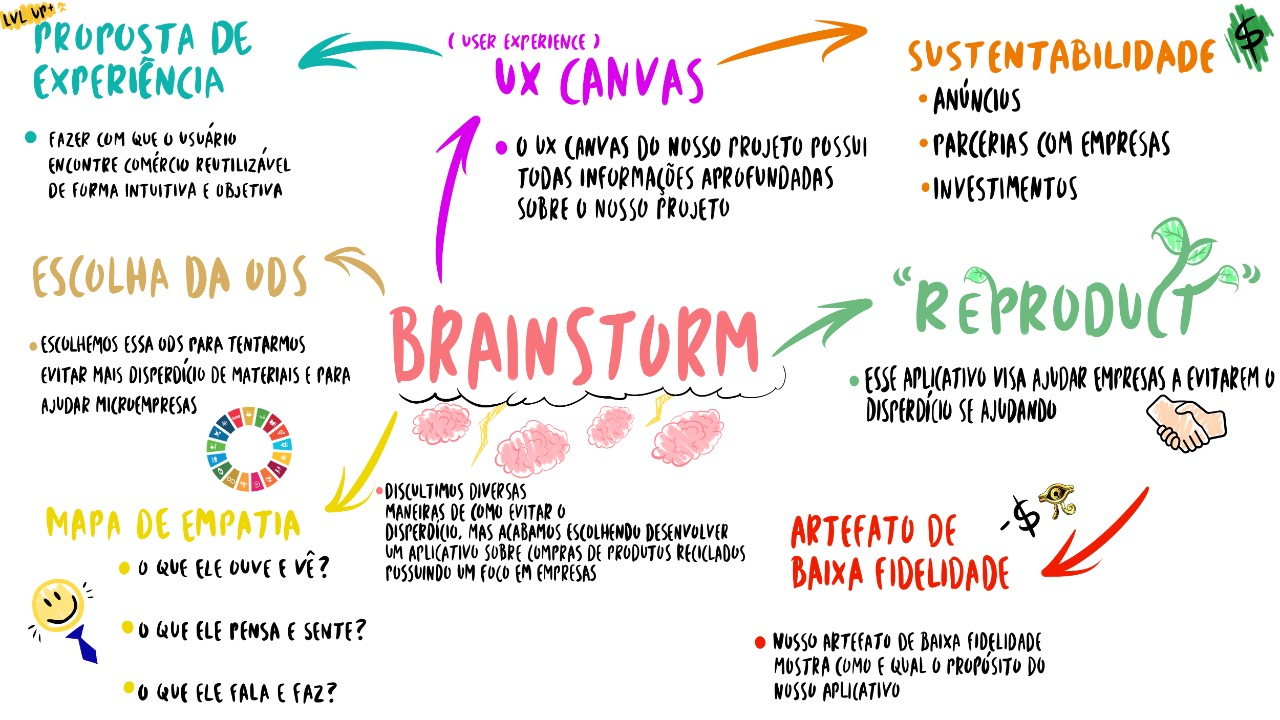 LVL UP+
PROPOSTA DE
EXPERIÊNCIA
FAZER COM QUE O USUÁRIO
ENCONTRE COMÉRCIO REUTILIZÁVEL
DE FORMA INTUITIVA E OBJETIVA
( USER EXPERIENCE )
UX CANVAS
O UX CANVAS DO NOSSO PROJETO POSSUI
TODAS INFORMAÇÕES APROFUNDADAS
SOBRE O NOSSO PROJETO
SUSTENTABILIDADE
$
ANÚNCIOS
PARCERIAS COM EMPRESAS
INVESTIMENTOS
ESCOLHA DA ODS
ESCOLHEMOS ESSA ODS PARA TENTARMOS
EVITAR MAIS DISPERDÍCIO DE MATERIAIS E PARA
AJUDAR MICROEMPRESAS
BRAINSTORM
DISCULTIMOS DIVERSAS
MANEIRAS DE COMO EVITAR O
DISPERDÍCIO, MAS ACABAMOS ESCOLHENDO DESENVOLVER
UM APLICATIVO SOBRE COMPRAS DE PRODUTOS RECICLADOS
POSSUINDO UM FOCO EM EMPRESAS
"REPRODUCT"
ESSE APLICATIVO VISA AJUDAR EMPRESAS A EVITAREM O
DISPERDÍCIO SE AJUDANDO
MAPA DE EMPATIA
O QUE ELE OUVE E VÊ?
O QUE ELE PENSA E SENTE?
O QUE ELE FALA E FAZ?
-$
ARTEFATO DE
BAIXA FIDELIDADE
NOSSO ARTEFATO DE BAIXA FIDELIDADE
MOSTRA COMO E QUAL O PROPÓSITO DO
NOSSO APLICATIVO